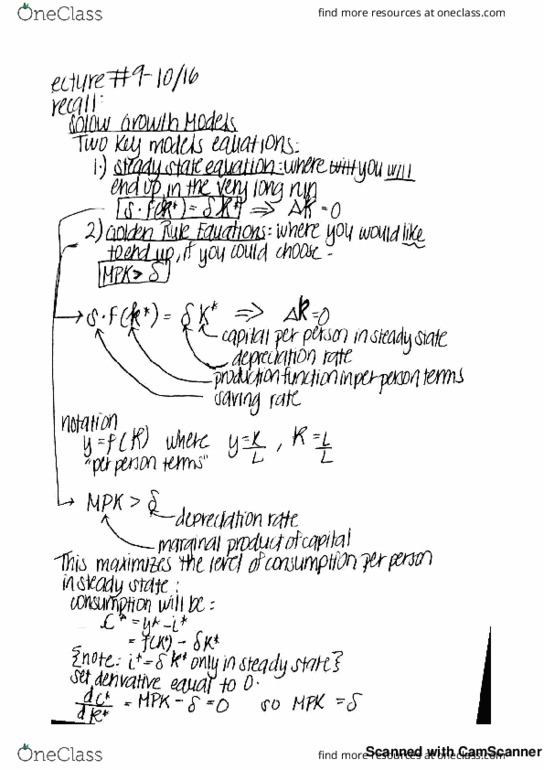 OneClass
find more resources at oneclass.com
ecture #9-10/16
recall:
Solow Growth Models
Two key models equations:
1.) steady state equation: where will you will
end up in the very long run
s·f(k*) = δk* ⇒ Δk=0
2) Golden Rule Equations: where you would like
to end up, if you could choose -
MPK > δ
s·f(k*) = δk* ⇒ Δk=0
capital per person in steady state
depreciation rate
production function in per person terms
saving rate
notation
y=f(k) where y=K/L, k=L/L
"per person terms"
MPK > δ
depreciation rate
marginal product of capital
This maximizes the level of consumption per person
in steady state:
consumption will be:
C* = y*-i*
= f(k*) - δk*
{note: i*=δk* only in steady state}
set derivative equal to 0.
dc*/dk* = MPK - δ = 0 so MPK = δ
OneClass
find more resources at oneclass.com
Scanned with CamScanner